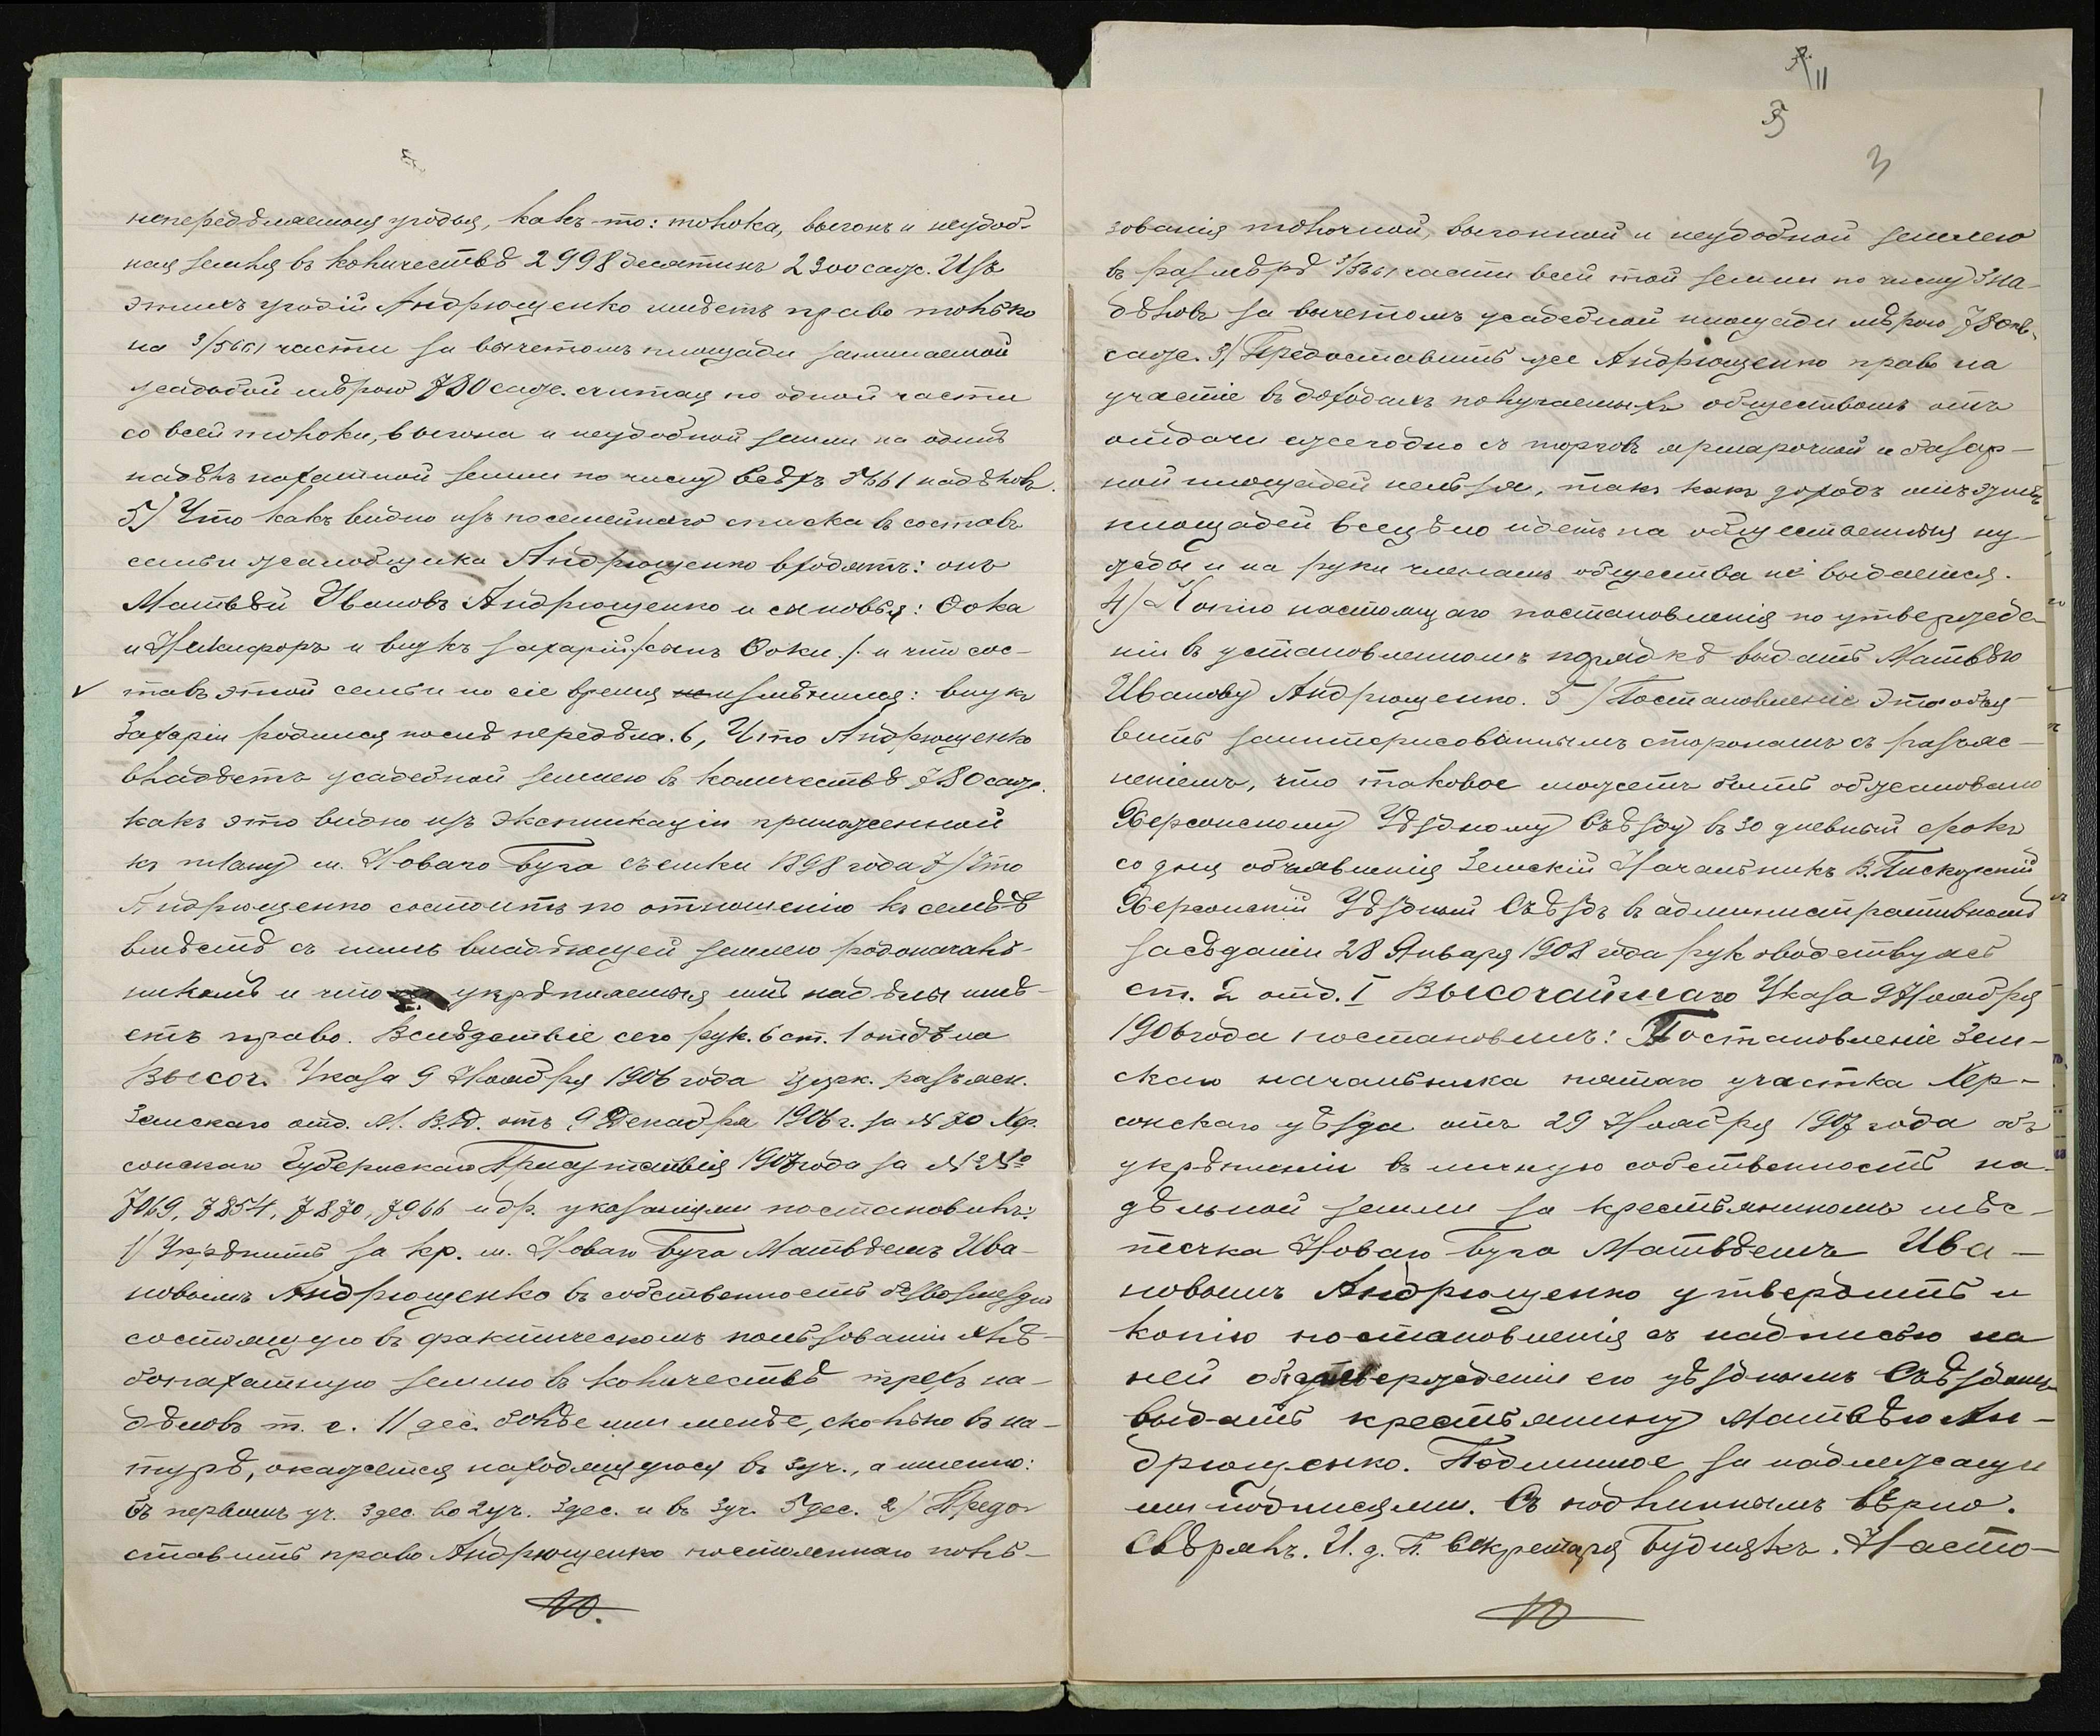 непередѣляемыя угодья, какъ-то: толока, выгонъ и неудоб-
ная земля въ количествѣ 2998 десятинъ 2300 саж. Изъ
этихъ угодій Андрющенко имѣетъ право только
на 3/5661 части за вычетомъ площади занимаемой
усадьбой мѣрою 780 саж. считая по одной части
со всей толоки, выгона и неудобной земли на одинъ
надѣлъ пахатной земли по числу всѣхъ 5661 надѣловъ.
5) Что какъ видно изъ посемейнаго списка въ составъ
семьи жалобщика Андрющенко входятъ: онъ
Матвѣй Ивановъ Андрющенко и сыновья: Фока
и Никифоръ и внукъ Захарій /сынъ Фоки./ и что сос-
тавъ этой семьи по сіе время измѣнился: внукъ
Захарій родился послѣ передѣла. 6, Что Андрющенко
владѣетъ усадебной землею въ количествѣ 780 саж.
какъ это видно изъ экспликаціи приложенной
къ плану м. Новаго Буга съемки 1898 года 7/ Что
Андрющенко состоитъ по отношенію къ семьѣ
вмѣстѣ съ нимъ владѣющей землею родоначаль-
никомъ и что на укрѣпляемыя имъ надѣлы имѣ-
етъ право. Вслѣдствіе сего рук. 6 ст. 1 отдѣла
Высоч. Указа 9 Ноября 1906 года цирк. разъясн.
Земскаго отд. М. В. Д. отъ 9 Декабря 1906 г. за № 70 Хер-
сонскаго Губернскаго Присутствія 1907 года за №№
7069, 7854, 7870, 7966 и др. указаніями постановилъ:
1/ Укрѣпить за кр. м. Новаго Буга Матвѣемъ Ива-
новымъ Андрющенко въ собственность безвозмездно
состоящую въ фактическомъ пользованіи хлѣ-
бопахатную землю въ количествѣ трехъ на-
дѣловъ т. е. 11 дес. болѣе или менѣе, сколько въ на-
турѣ, окажется находящуюся въ 3 уч., а именно:
въ первомъ уч. 3 дес. во 2 уч. 3 дес. и въ 3 уч. 5 дес. 2/ Предо-
ставить право Андрющенко постояннаго поль-
3
зованія толочной, выгонной и неудобной землею
въ размѣрѣ 3/5661 части всей той земли по числу 3 на-
дѣловъ за вычетомъ усадебной площади мѣрою 780 кв.
саж. 3/ Предоставить же Андрющенко право на
участіе въ доходахъ получаемыхъ обществомъ отъ
отдачи ежегодно съ торговъ ярмарочной и базар-
ной площадей нельзя, такъ какъ доходъ отъ этихъ
площадей всецѣло идетъ на общественныя ну-
жды и на руки членамъ общества не выдается.
4/ Копію настоящаго постановленія по утвержде-
ніи въ установленномъ порядкѣ выдать Матвѣю
Иванову Андрющенко. 5/ Постановленіе это объя-
вить заинтерисованнымъ сторонамъ съ разъяс-
неніемъ, что таковое можетъ быть обжаловано
Херсонскому Уѣздному Съѣзду въ 30 дневный срокъ
со дня объявленія Земскій Начальникъ В. Пискорскій
Херсонскій Уѣздный Съѣздъ въ административномъ
засѣданіи 28 Января 1908 года руководствуясь
ст. 2 отд. I Высочайшаго Указа 9 Ноября
1906 года постановилъ: Постановленіе Зем-
скаго начальника пятаго участка Хер-
сонскаго уѣзда отъ 29 Ноября 1907 года объ
укрѣпленіи въ личную собственность на-
дѣльной земли за крестьяниномъ мѣс-
течка Новаго Буга Матвѣемъ Ива-
новымъ Андрющенко утвердить и
копію постановленія съ надписью на
ней объ утвержденіи его уѣзднымъ Съѣздомъ
выдать крестьянину Матвѣю Ан-
дрющенко. Подлинное за надлежащи
ми подписями. Съ подлиннымъ вѣрно.
Свѣрялъ. И. д. П. Секретаря Буднякъ. Насто-